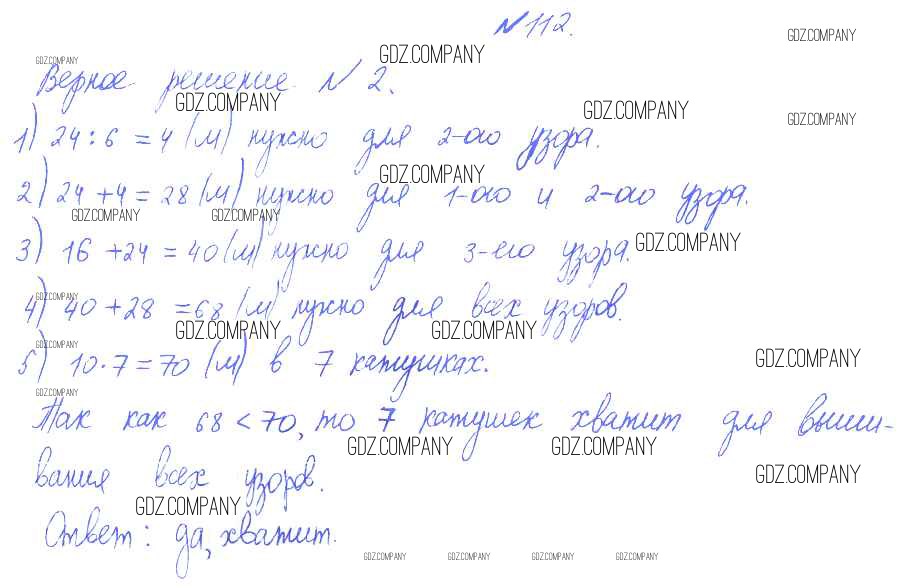 №112.
GDZ.COMPANY
GDZ.COMPANY
GDZ.COMPANY
Верное решение №2.
GDZ.COMPANY
GDZ.COMPANY
GDZ.COMPANY
1) 24 : 6 = 4 (м) нужно для 2-ого узора.
GDZ.COMPANY
2) 24 + 4 = 28 (м) нужно для 1-ого и 2-ого узора.
GDZ.COMPANY GDZ.COMPANY
GDZ.COMPANY
3) 16 + 24 = 40 (м) нужно для 3-его узора.
GDZ.COMPANY
4) 40 + 28 = 68 (м) нужно для всех узоров.
GDZ.COMPANY GDZ.COMPANY
GDZ.COMPANY
GDZ.COMPANY
5) 10 · 7 = 70 (м) в 7 катушках.
GDZ.COMPANY
Так как 68 < 70, то 7 катушек хватит для выши-
GDZ.COMPANY GDZ.COMPANY
вания всех узоров.
GDZ.COMPANY
GDZ.COMPANY
Ответ: да, хватит.
GDZ.COMPANY GDZ.COMPANY GDZ.COMPANY GDZ.COMPANY